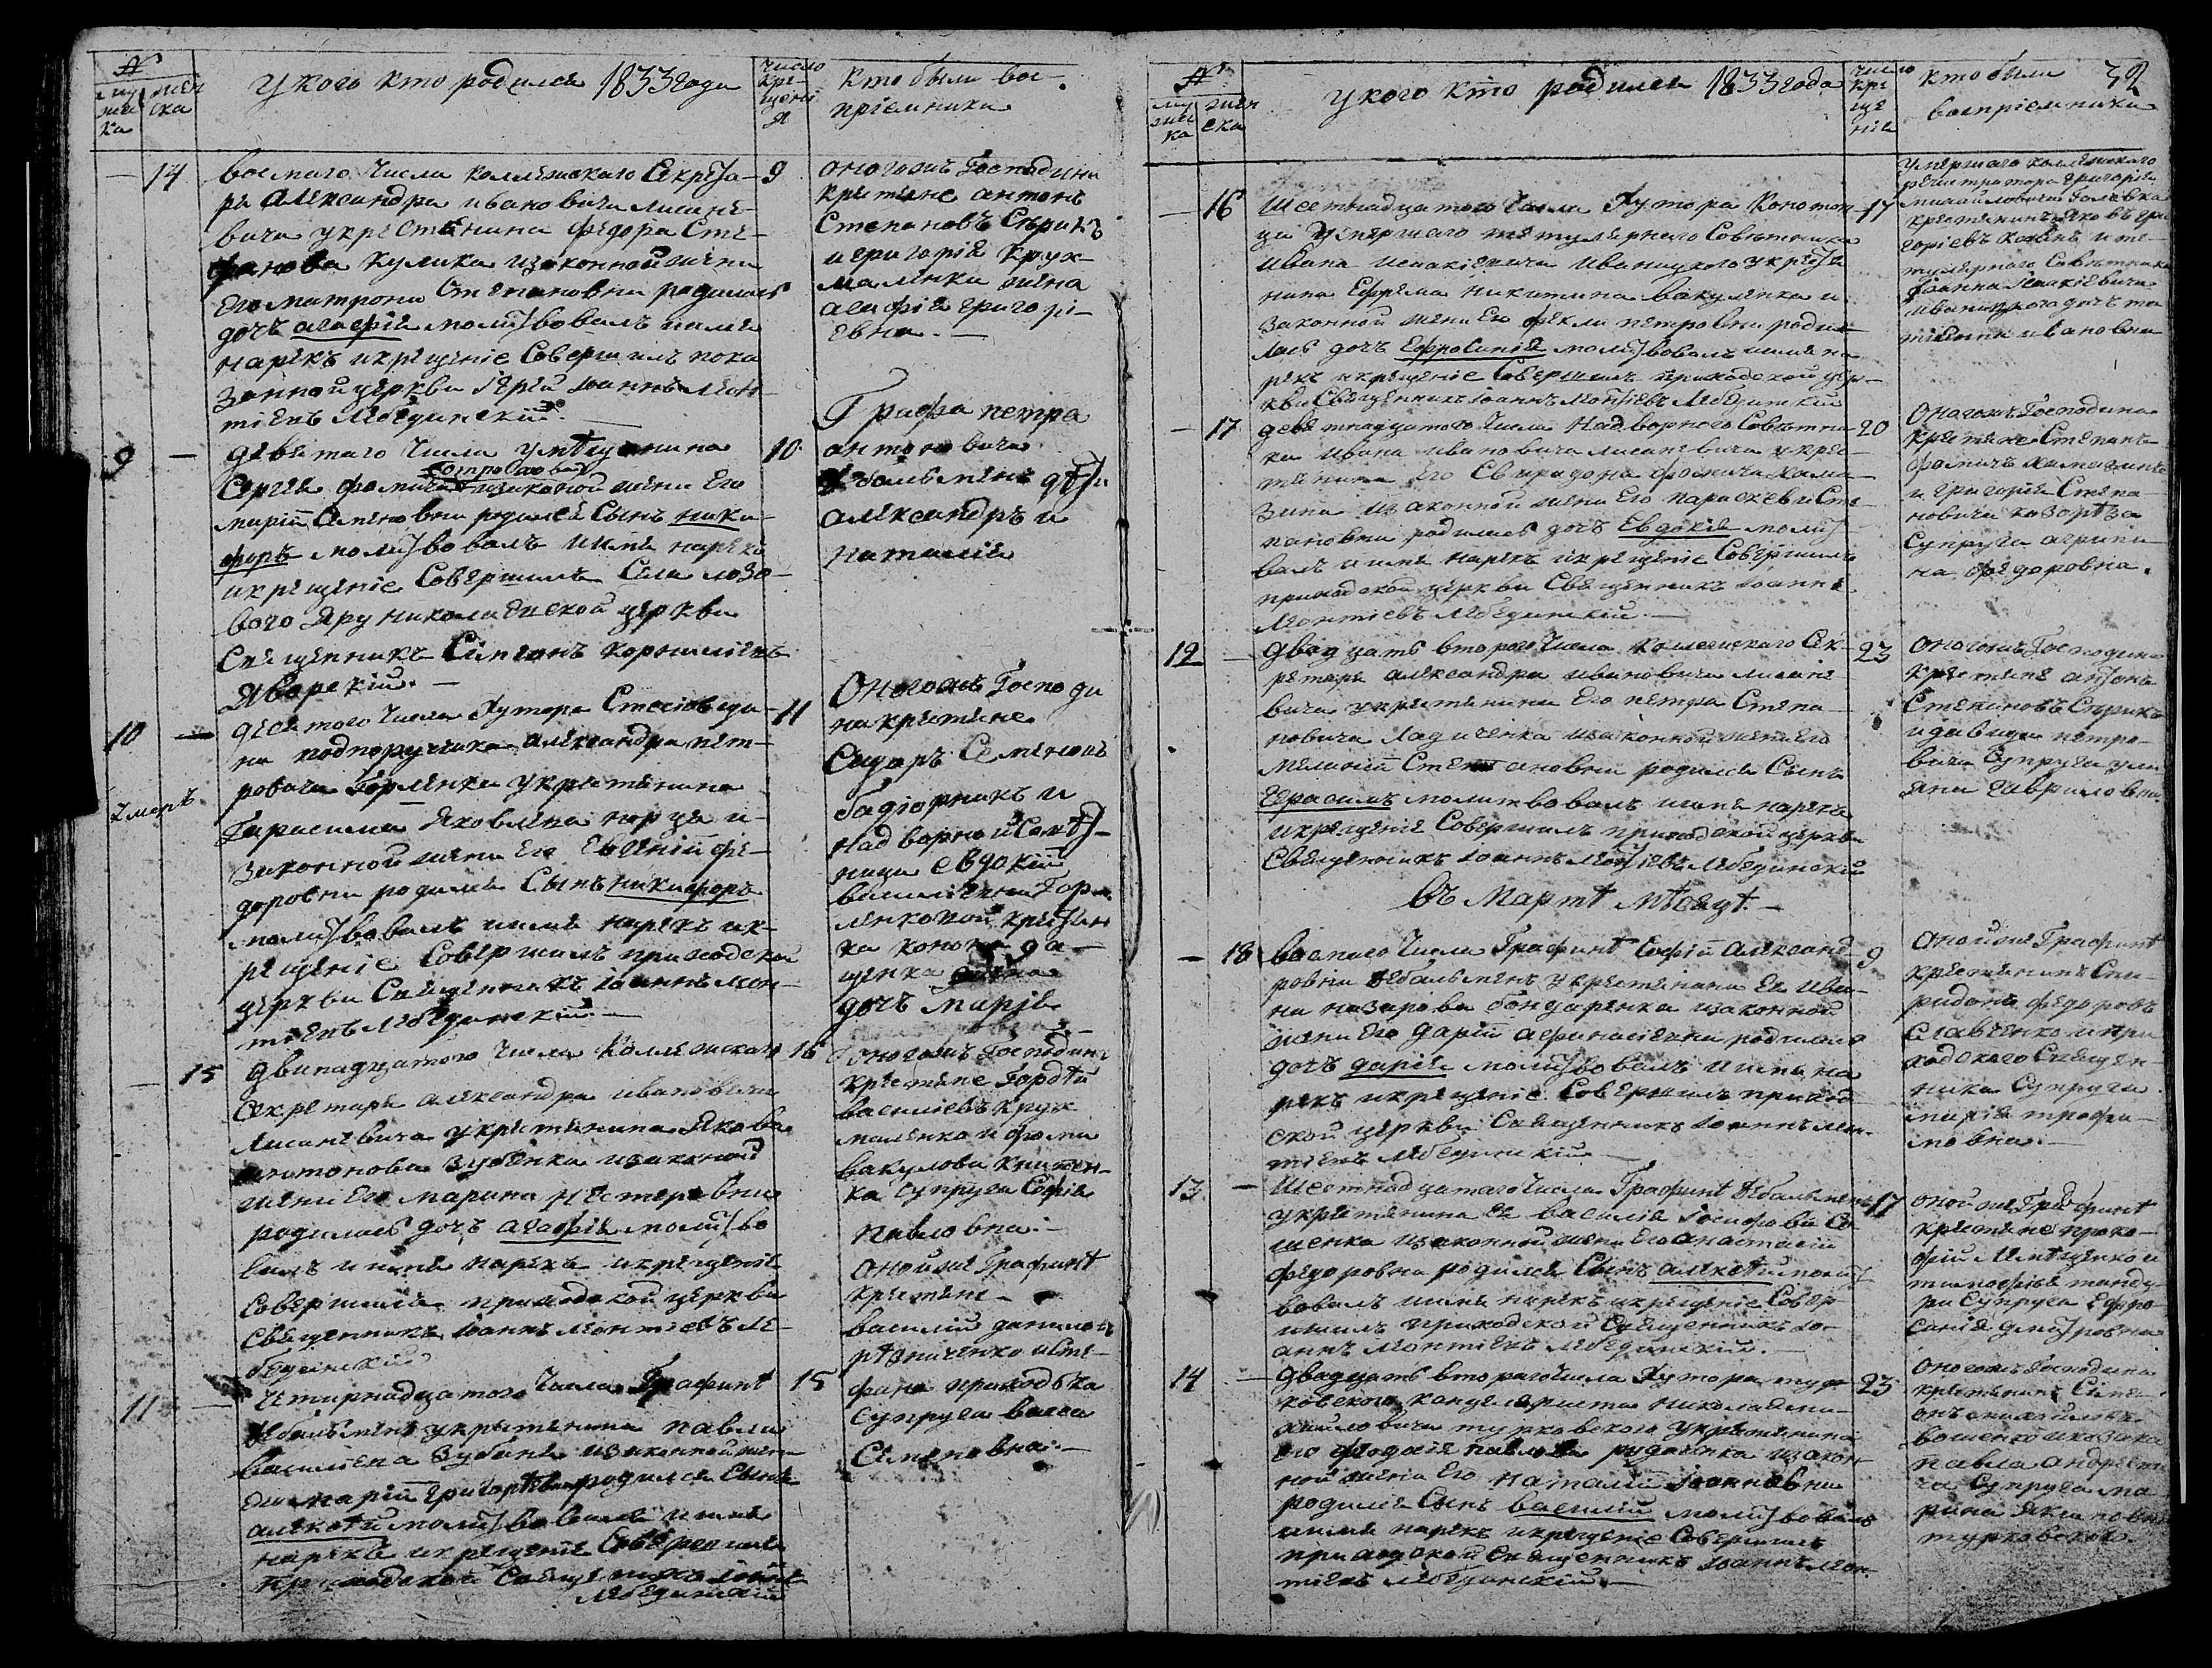 №
муж
ска
жен
ска
У кого кто родился 1833 года
число
кре-
щени
я
кто были вос-
приемники
14
восмаго числа коллежскаго Секрета-
ря Александра Ивановича Лисане-
вича у крестянина Федора Сте-
фанова Кулика и законной жены
Его Матроны Степановны родилась
дочъ Агафiя молитвовалъ имя
нарекъ и крещенiе Совершилъ пока
занной церкви Iерей Iоаннъ Леон-
тiевъ Лебединскiй
9
оногожъ Господина
крестяне Антонъ
Степановъ Сѣрикъ
и Григорiя Крух-
маленка жена
Агафiя Григорi-
евна
9
девятаго числа у мѣщанина
Сергея Фомича и законной жены Его
Марiи Семеновны родился Сынъ Ники-
форъ молитвовалъ имя нарекъ
и крещенiе Совершилъ Села Лозо-
вого Яру Николаевской церкви
Священникъ Симеонъ Корнилiевъ
Яворскiй
10
Графа Петра
Антоновича
Дебальменъ дѣти
Александръ и
Наталiя
10
умеръ
десятого числа Хутора
подпоручика Александра Пет-
ровича Горленка у крестянина
Герасима Яковлева и
законной жены Его Евгенiи Фе-
доровны родился Сынъ Никифоръ
молитвовалъ имя нарекъ и к-
рещенiе Совершилъ приходской
церкви Священникъ Iоаннъ Леон-
тiевъ Лебединскiй
11
Оногожъ Господи
на крестяне
Сидоръ Семеновъ
и
надворной Совѣт-
ници Евдокiи
Василiевни Гор-
ленковой крестян
ка
дочъ Марiя
15
двинадцатого числа Коллежскаго
Секретаря Александра Ивановича
Лисаневича у крестянина Якова
Антонова Зубенка и законной
жени Его Марини Нестеровни
родилась дочъ Агафiя молитво
валъ имя нарекъ и крещенiе
Совершилъ приходской церкви
Священникъ Iоаннъ Леонтiевъ Ле-
бединскiй
16
оногожъ Господина
крестяне Гордѣй
Василiевъ Крух
маленко и Фоми
Вакулова
ка Супруга Софiя
Павловна
11
Четирнадцатого числа Графинѣ
Дебальменъ у крестянина Павла
Василiева Зубаня и законной жени
Его Марiи Григорiевни родился Сынъ
Алексѣй молитвовалъ имя
нарекъ и крещенiе Совершилъ
приходской Священникъ Iоаннъ
Лебединскiй
15
Оной же Графинѣ
крестяне
Василiй Даниловъ
Рѣзниченко и Сте-
фана Приходька
Супруга Васса
Семеновна
№
муж
ска
жен
ска
У кого кто родился 1833 года
число
кре
ще
нiя
кто были
воспрiемники
32
16
Шестнадцатого числа Хутора Конотоп
ци Умершаго титулярнаго Совѣтника
Ивана Исакiевича Иваницкого у крестя
нина Ефрема Никитина Вакуленка и
законной жени Его Фекли Петровни роди
лась дочъ Ефросинiя молитвовалъ имя на
рекъ и крещенiе Совершилъ приходской цер-
кви Священникъ Iоаннъ Леонтiевъ Лебединскiй
17
Умершаго коллежскаго
регистратора Григорiя
Михайловича
крестянинъ Яковъ Гри
горiевъ и ти-
тулярнаго Совѣтника
Iоанна Исакiевича
Иваницкого дочъ
Ивановна
17
девятнадцатого числа Надворного Совѣтни-
ка Ивана Ивановича Лисаневича у крес-
тянина Его Свиридона Фомича Хама-
зина и законной жени Его Параскевiи Сте-
пановни родилась дочъ Евдокiя молит
валъ имя нарекъ и крещенiе Совершилъ
приходской церкви Священникъ Iоаннъ
Леонтiевъ Лебединскiй
20
Оногожъ Господина
крестяне Степанъ
Фомичъ Хамазинъ
и Григорiя Степа-
новича
Супруга Агрипи-
на Федоровна
12
двадцать второго числа Коллежскаго Сек-
ретаря Александра Ивановича Лисане
вича у крестянина Его Петра Степа-
новича Ладиченка и законной жени Его
Меланiи Степановни родился Сынъ
Герасимъ молитвовалъ имя нарекъ
и крещенiе Совершилъ приходской церкви
Священникъ Iоаннъ Леонтiевъ Лебединскiй
23
оногожъ Господина
крестяне Антонъ
Степановъ Сѣрикъ
и Давида Петро-
вича Супруга Ули
яна Гавриловна
Въ Мартѣ Мѣсяцѣ
18
восмаго числа Графинѣ Софiи Александ-
ровни Дебальменъ у крестянина Ея Ива-
на Назарова Бондаренка и законной
жени Его Дарiи Афанасiевни родилась
дочъ Дарiя молитвовалъ имя на
рекъ и крещенiе Совершилъ приход-
ской церкви Священникъ Iоаннъ Леон-
тiевъ Лебединскiй
9
Оной же Графинѣ
крестянинъ Спи-
ридонъ Федоровъ
Славченко и при
ходского Священ-
ника Супруга
Марiя Трофи-
мовна
13
Шестнадцатаго числа Графинѣ Дебальменъ
у крестянина Ея Василiя Iосифова Са-
шенка и законной жени Его Анастасiи
Федоровни родился Сынъ Алексѣй молит
вовалъ имя нарекъ и крещенiе Совер
шилъ приходской Священникъ Iо-
аннъ Леонтiевъ Лебединскiй
17
оной же Графинѣ
крестяне Проко-
фiй и
Тимофѣя
Супруга Ефро-
синiя Дмитровна
14
двадцать второго числа Хутора Тур-
ковского канцеляриста Николая Ми-
хайловича Турковского у крестянина
его Феодосiя Павлова Рудченка и закон
ной жени Его Наталiи Iоанновни
родился Сынъ Василiй молитвовалъ
имя нарекъ и крещенiе Совершилъ
приходской Священникъ Iоаннъ Леон-
тiевъ Лебединскiй
23
Оногожъ Господина
крестянинъ Симе-
онъ Михайловъ
и козака
Павла Андрѣеви
ча Супруга Ма
рина Якимовна
Турковского